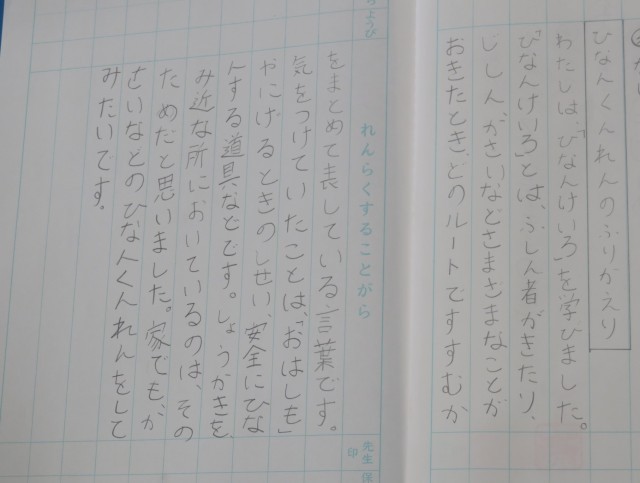 ひなんくんれんのふりかえり
わたしは、「ひなんけいろ」を学びました。
「ひなんけいろ」とは、ふしん者がきたり、
じしん、かさいなどさまざまなことが
おきたとき、どのルートですすむか
ようび
れんらくすることがら
先生
印
保
をまとめて表している言葉です。
気をつけていたことは、「おはしも」
やにげるときのしせい、安全にひな
んする道具などです。しょうかきを、
み近な所においているのは、その
ためだと思いました。家でも、か
さいなどのひなんくんれんをして
みたいです。